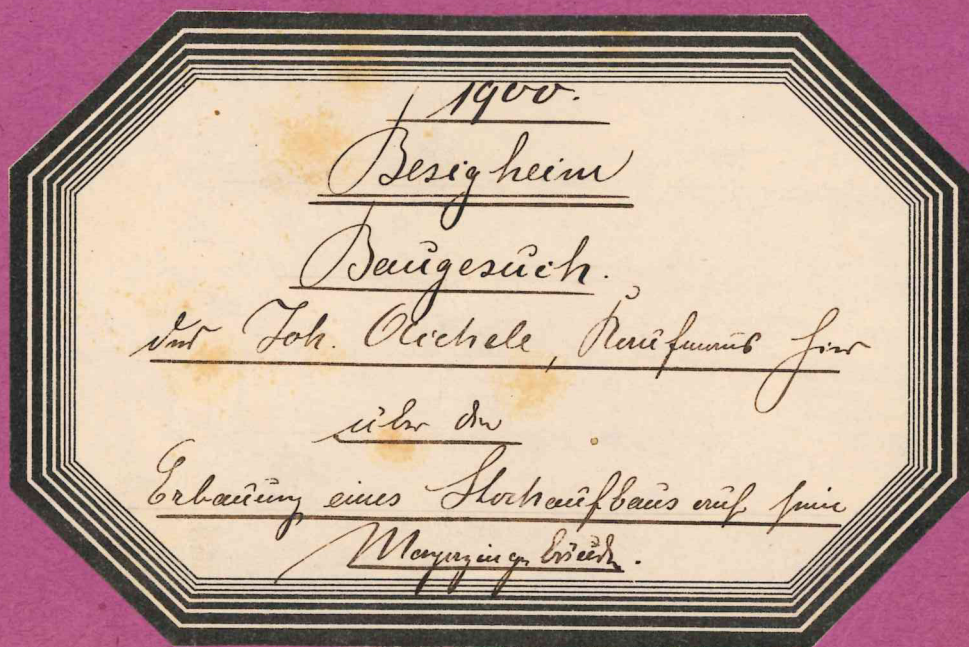 1900.
Besigheim
Baugesuch.
des Joh. Aichele, Kaufmanns hier
über die
Erbauung eines Stockaufbaus auf sein
Magazingebäude.